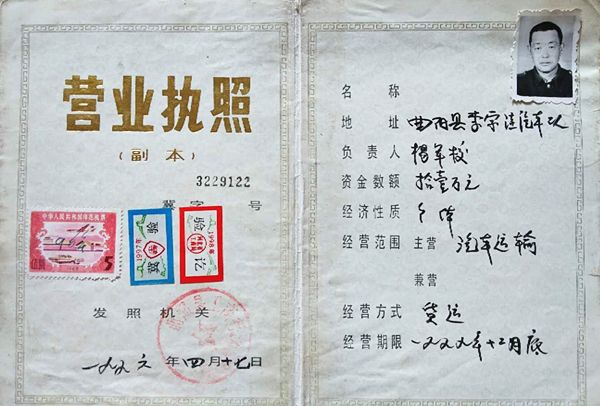 营业执照
(副本)
3229122
冀 字 号
中华人民共和国印花税票
伍圆 5
验 1997年
1998年 验讫
发照机关
一九九六年四月十七日
名称
地址 曲阳县李家洼汽车队
负责人 杨军校
资金数额 拾壹万元
经济性质 个体
经营范围 主营 汽车运输
兼营
经营方式 货运
经营期限 一九九九年十二月底